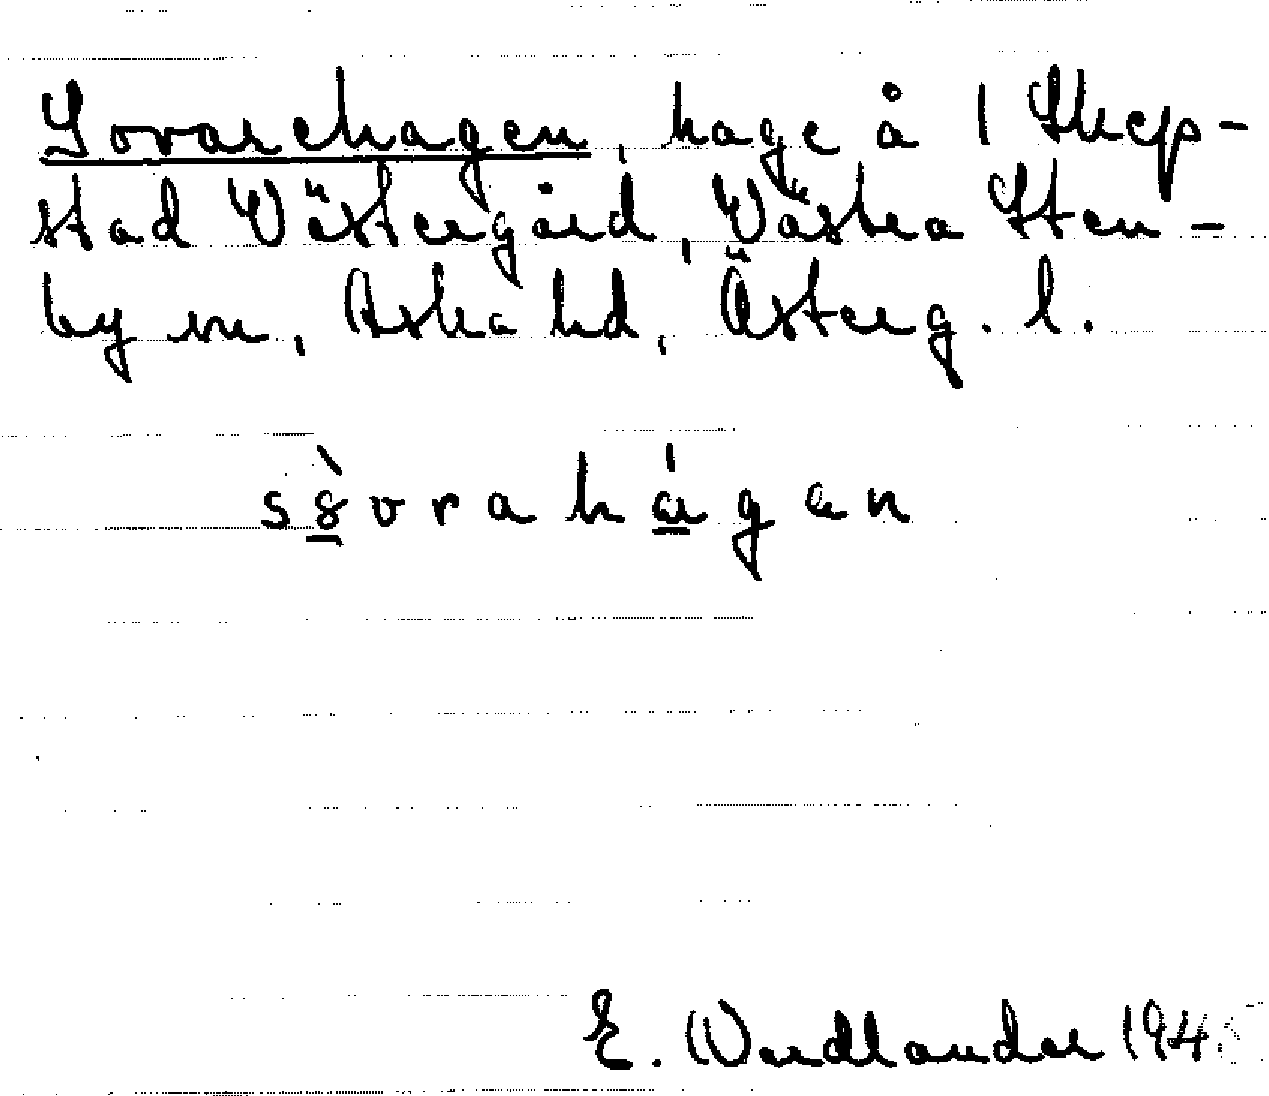 Sovarehagen, hage å 1 Skep-
stad Västergård, Västra Sten-
by sn, Aska hd, Österg. l.
s8̀vrahágan
E. Wadlander 194